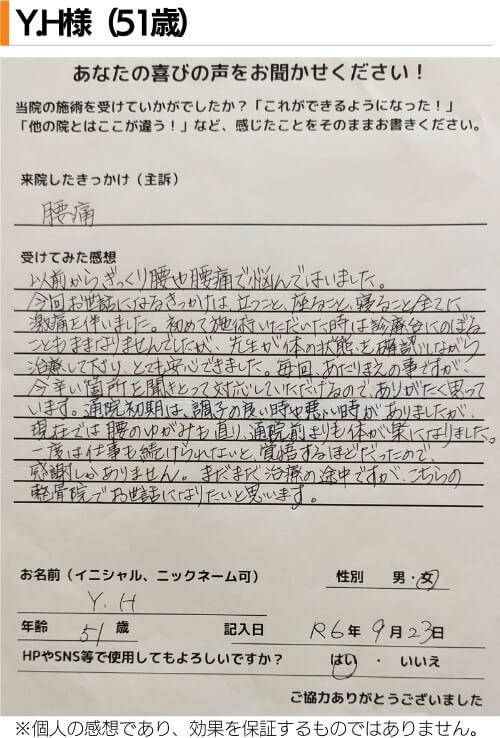 Y.H様（51歳）
あなたの喜びの声をお聞かせください！
当院の施術を受けていかがでしたか？「これができるようになった！」
「他の院とはここが違う！」など、感じたことをそのままお書きください。
来院したきっかけ（主訴）
腰痛
受けてみた感想
以前からぎっくり腰や腰痛で悩んではいました。
今回お世話になるきっかけは、立つこと、座ること、寝ること全てに
激痛を伴いました。初めて施術いただいた時は診療台にのぼる
こともままなりませんでしたが、先生が体の状態を確認しながら
治療して下さり、とても安心できました。毎回、あたりまえの事ですが、
今辛い箇所を聞きとって対応していただけるので、ありがたく思って
います。通院初期は、調子の良い時や悪い時がありましたが、
現在では腰のゆがみも直り、通院前よりも体が楽になりました。
一度は仕事も続けられないと、覚悟するほどだったので、
感謝しかありません。まだまだ治療の途中ですが、こちらの
整骨院でお世話になりたいと思います。
お名前（イニシャル、ニックネーム可） 性別 男・女
Y.H
年齢 51 歳 記入日 R6年 9月23日
HPやSNS等で使用してもよろしいですか？ はい ・ いいえ
ご協力ありがとうございました
※個人の感想であり、効果を保証するものではありません。